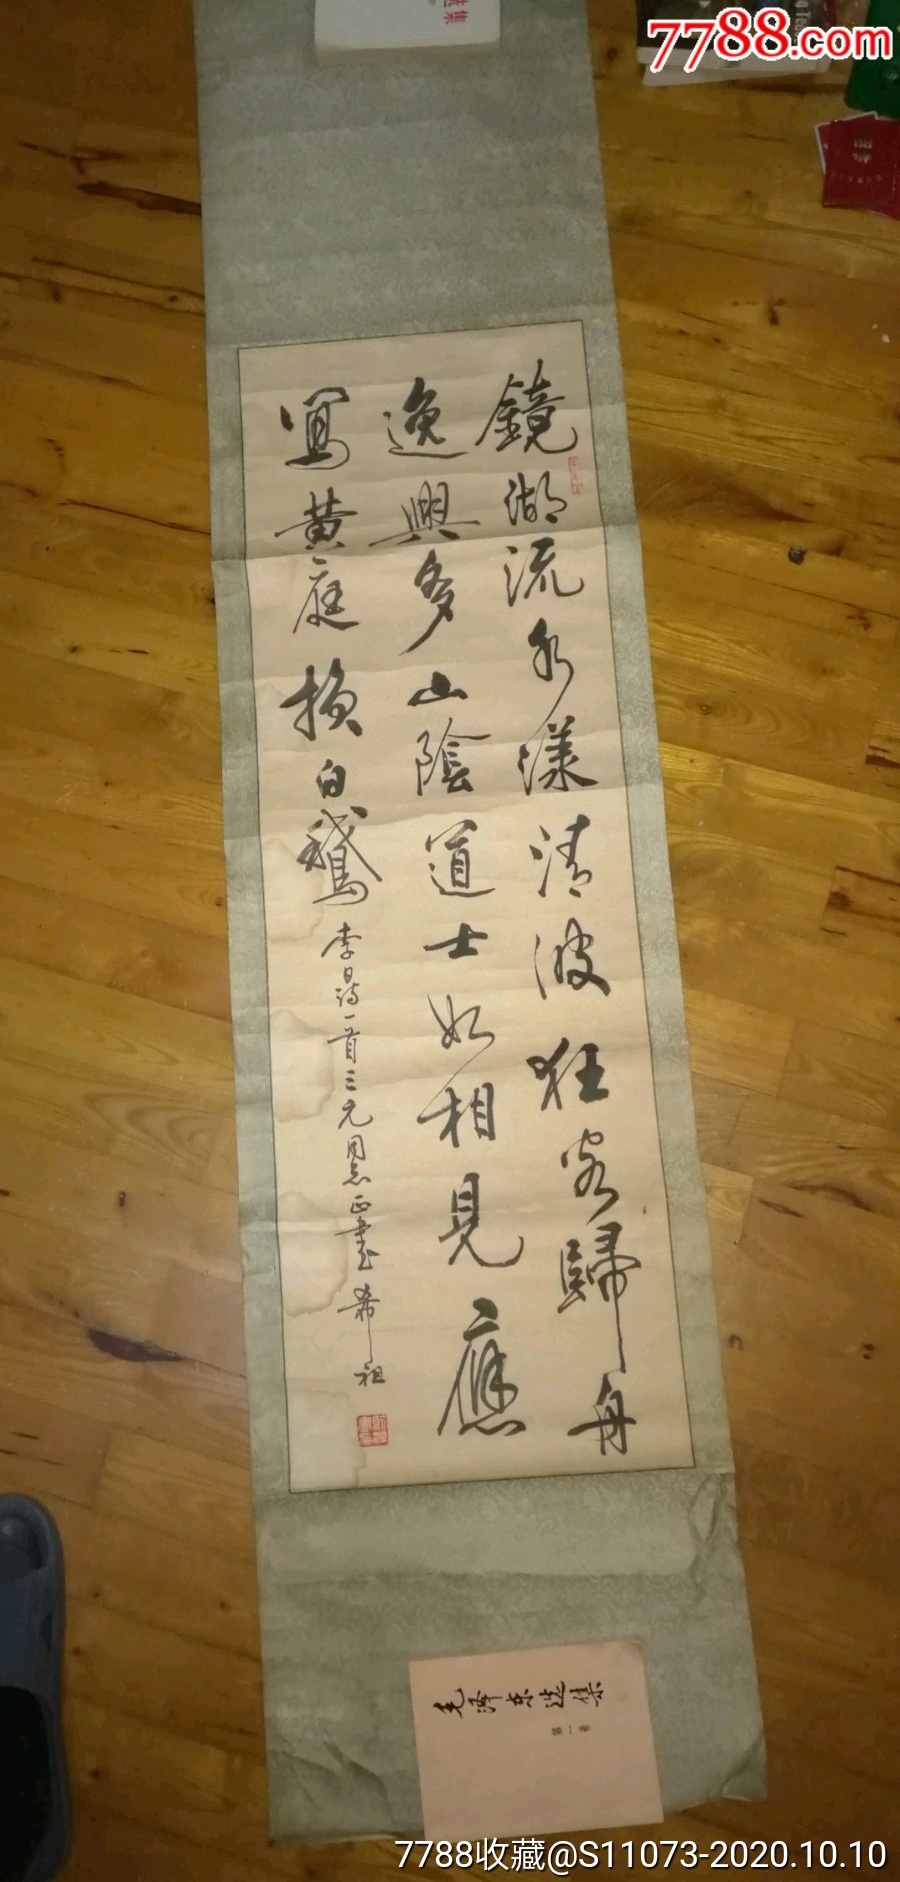 7788.com
鏡湖流水漾清波狂客歸舟
逸興多山陰道士如相見應
寫黄庭換白鵝
李白詩一首三元同志正書希祖
毛泽东选集
第一卷
7788收藏@S11073-2020.10.10